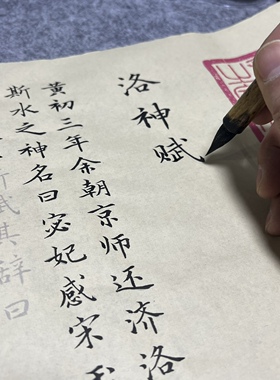 洛神赋
黄初三年余朝京师还济洛
斯水之神名曰宓妃感宋
斯赋其辞曰